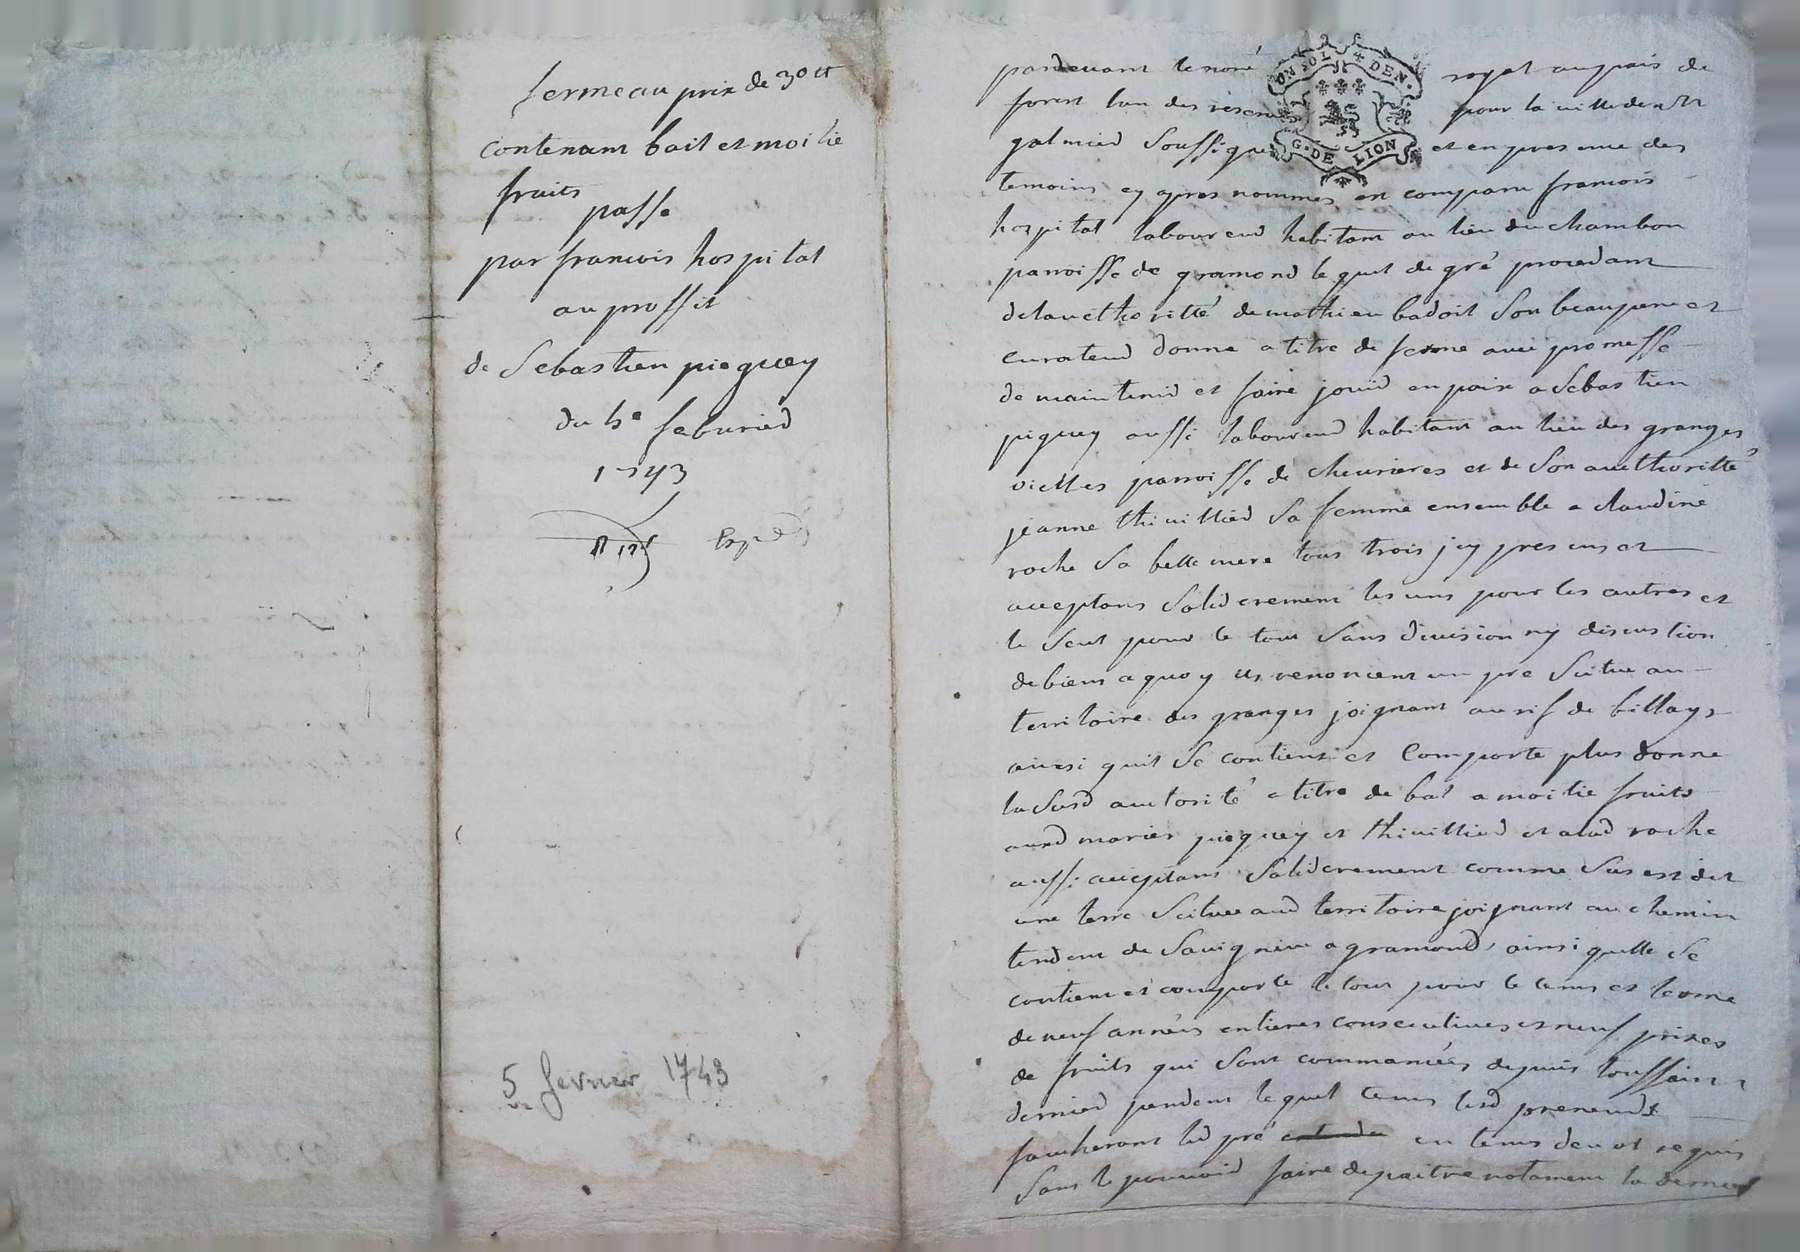 ferme au prix de 30 tt
contenant bail et moitie
fruits
passe
par francois hospital
au proffit
de Sebastien piequey
du 5e feburier
1743
Expd
5 fevrier 1743
UN SOL 4 DEN.
G. DE LION
pardevant le noré royal au pais de
forest l'un des réservés pour la ville de st
galmier soussigné et en presence des
temoins cy apres nommes est comparu francois
hospital laboureur habitant au lieu du chambon
parroisse de gramond lequel de gré procedant
delaucthoritté de mathieu badoil son beaupere et
curateur donne a titre de ferme avec promesse
de maintenir et faire jouir en paix a Sebastien
piquey aussi laboureur habitant au lieu des granges
vielles parroisse de chevrieres et de son aucthoritté
jeanne thivillier sa femme ensemble a claudine
roche sa belle mere tous trois jcy presens et
acceptans soliderement les uns pour les autres et
le seul pour le tout sans division ny discustion
de biens a quoy ils renoncent un pre scitue au
territoire des granges joignant au rif de billays
ainsi quil se contient et comporte plus donne
la susd autorité a titre de bal a moitie fruits
auxd mariés piequey et thivillier et alad roche
aussi acceptans soliderement comme sus est dit
une terre scituee aud territoire joignant au chemin
tendant de savigneu a gramond, ainsi quelle se
contient et comporte le tout pour le tems et terme
de neuf années entieres consecutives et neuf prises
de fruits qui sont commancées depuis toussaint
dernier pendent lequel tems lesd preneurs
faucheront led pré en tems deu et requis
sans le pouvoir faire depaitre notament la dernier